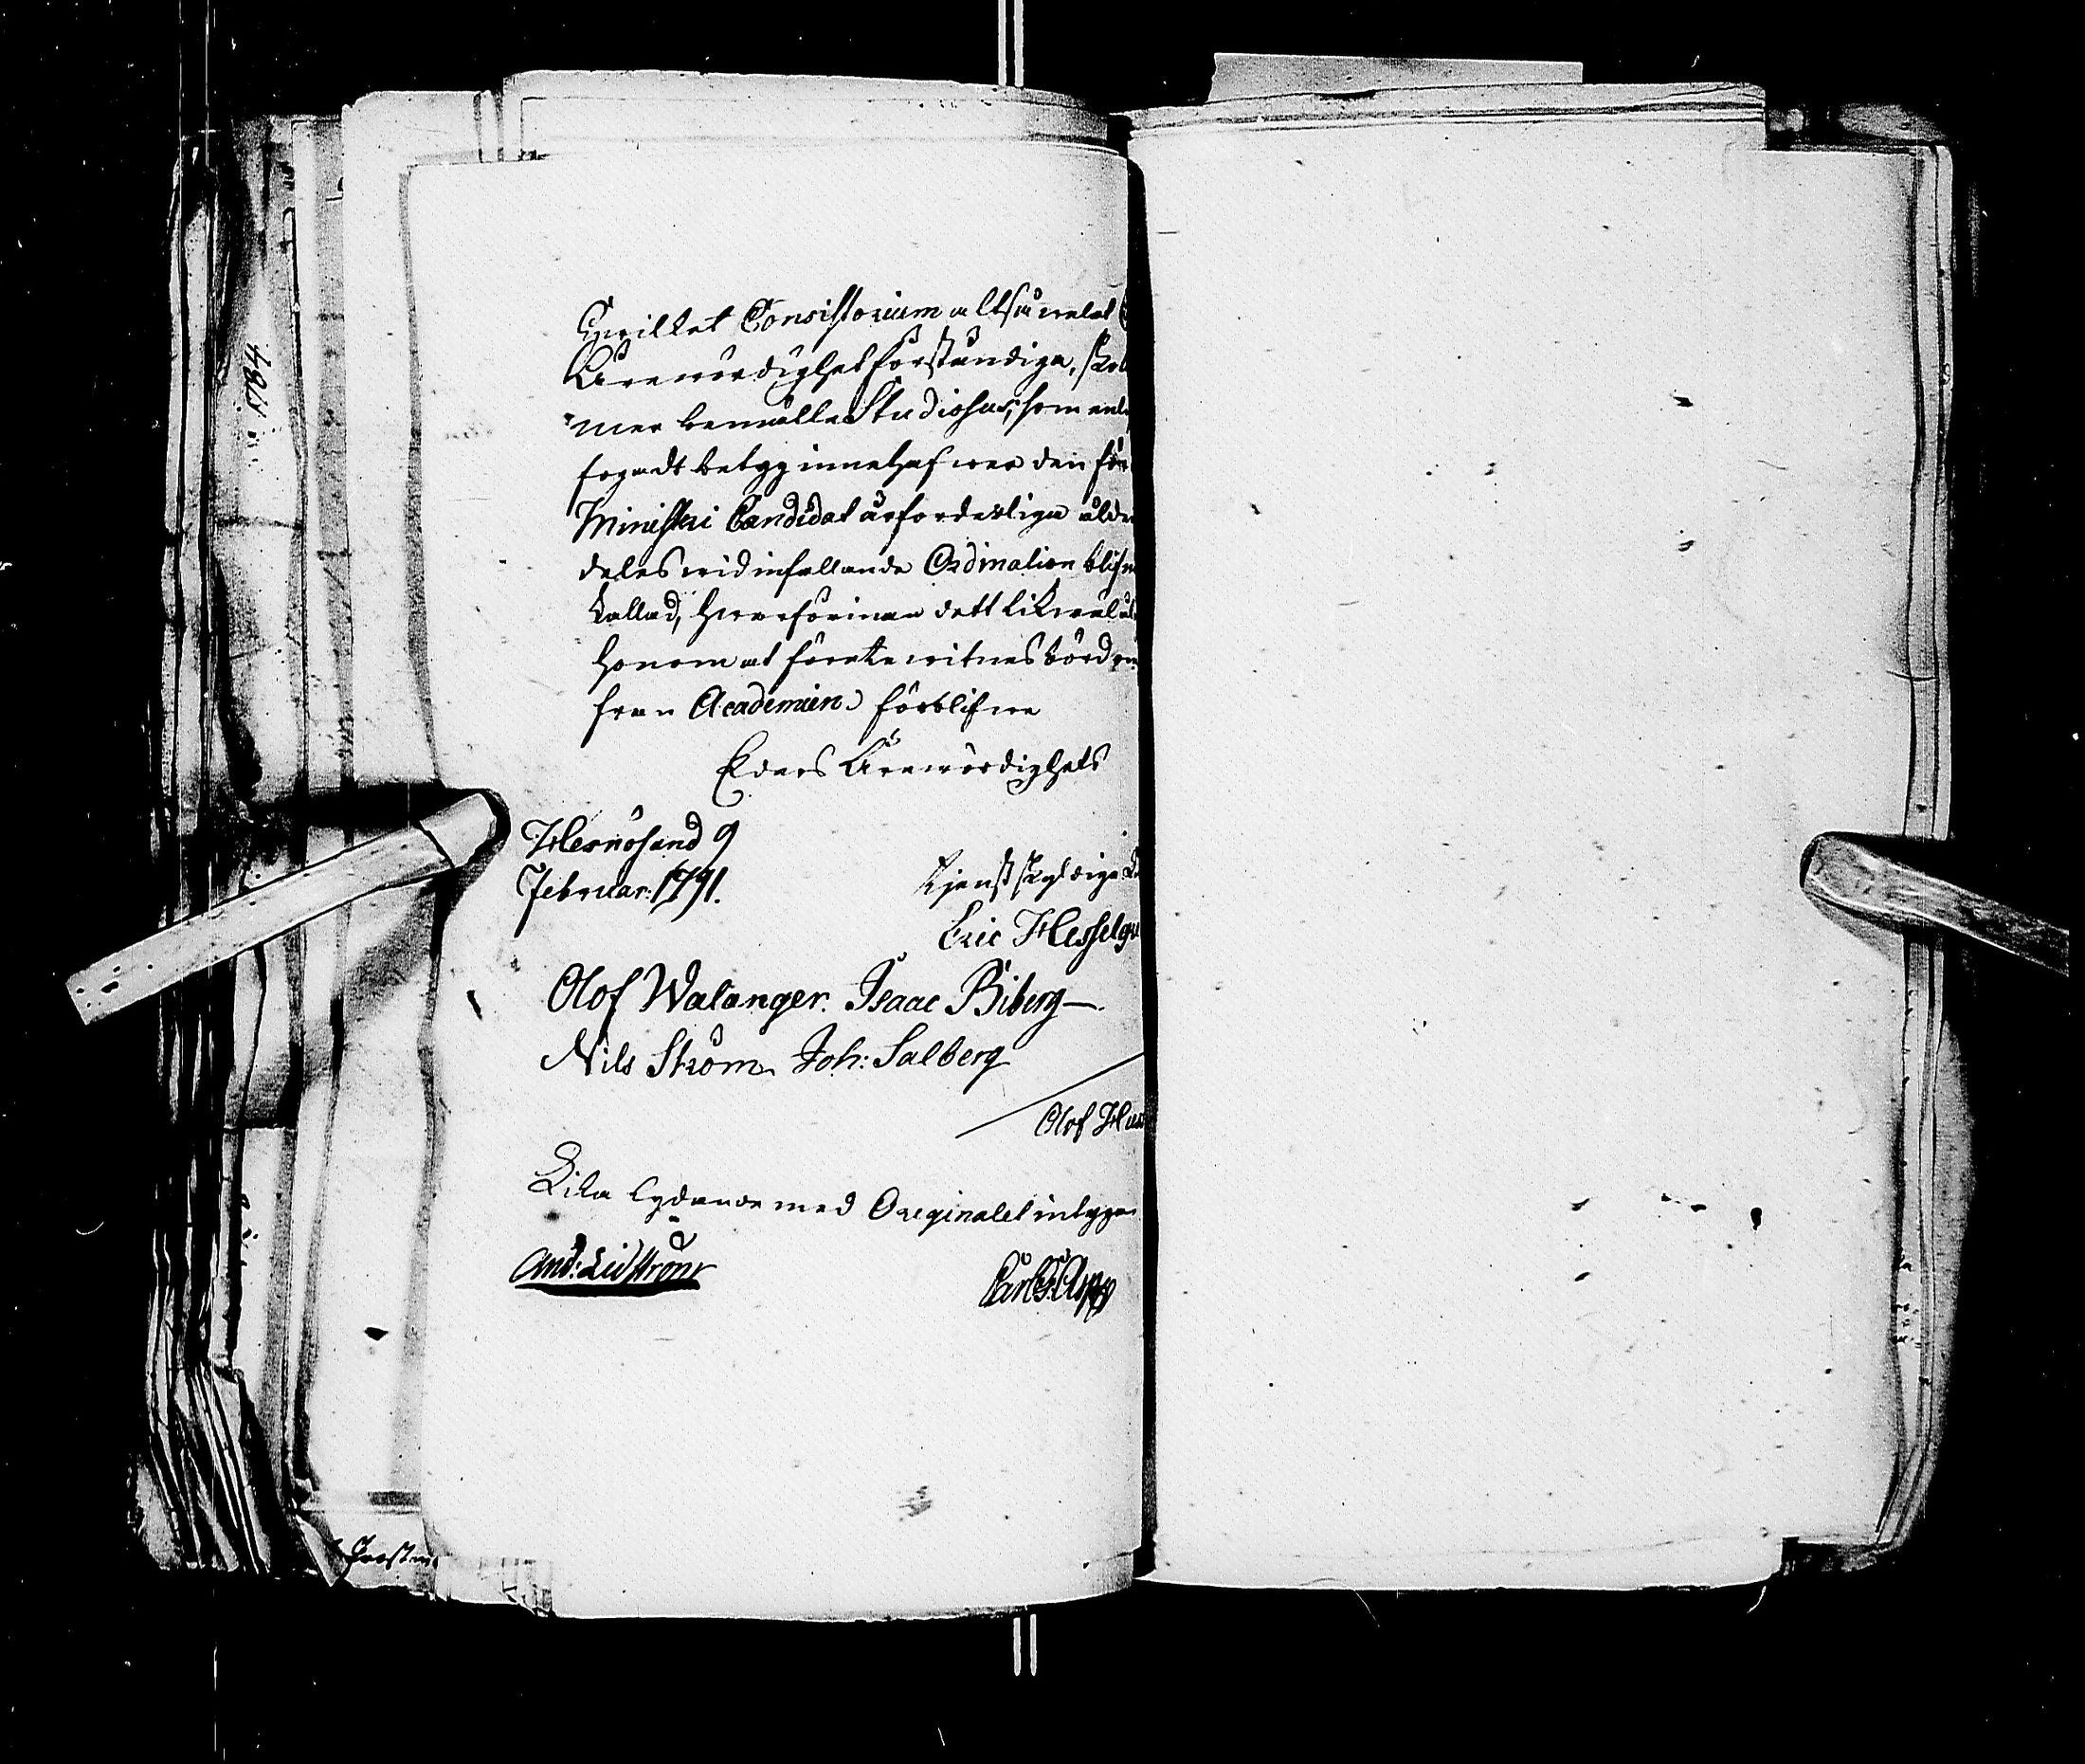 Hwilket Consistorium altså welat
Ärewördighet förständiga, skol
mer bemälte Studiosus, som enl
fogadt betyg innehafwer den för
Ministerii Candidat ärforderliga ålde
deles wid infallande Ordination blifw
kallad, hwarförinnan dett likwäl
honom at förete witnesbörd
från Academien. förblifwa
Eders Ärewördighets
Hernösand 9
Februar: 1791.
tjenstskyldige
Eric Hesselgr
Olof Walanger. Isaac Biberg
Nils Ström. Joh: Salberg
Olof
Lika lydande med Originalet intyga
And: Lidström
Carl G: Asp
484
Prosten